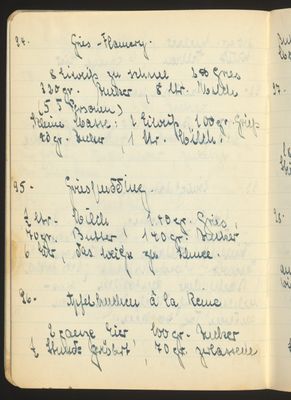 24. Gries-Flamery.
8 Eiweiß zu Schnee 380 Gries
320 gr. Zucker, 8 ltr. Milch
(55 Personen)
Kleine Masse: 2 Eiweiß 100 gr. Gries
70 gr. Zucker, 1 ltr. Milch.
25. Griespudding.
ltr. Milch 170 gr. Gries,
70 gr. Butter, 140 gr. Zucker
6 Eier, das weiße zu Schnee.
26. Apfelkuchen à la Reine
2 ganze Eier 100 gr. Zucker
Stunde gerührt, 70 gr. zerlassene